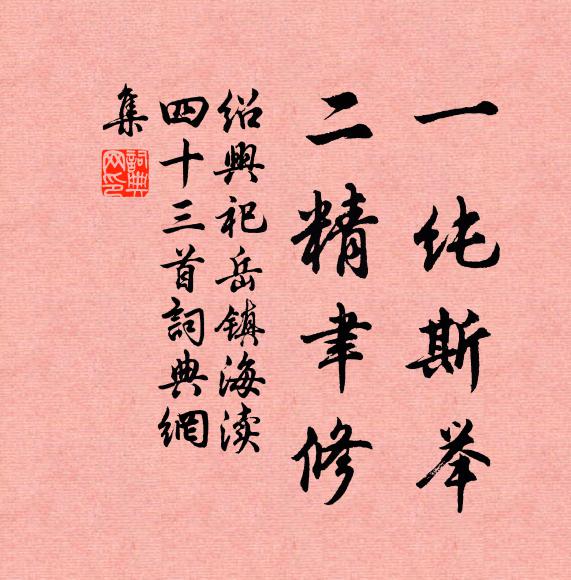 一纯斯举
二精聿修
绍興祀岳镇海渎
四十三首詞典網
集
詞典
网印